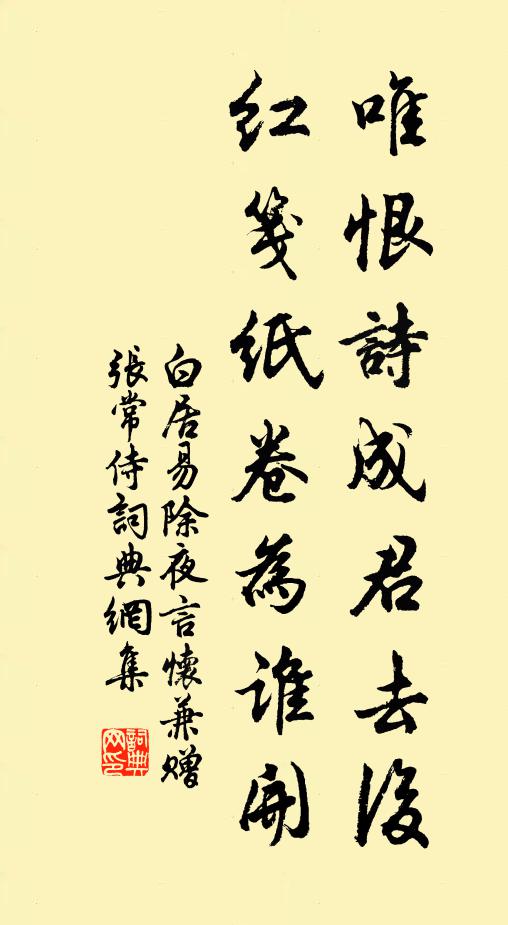 唯恨詩成君去後
紅箋紙卷為誰開
白居易除夜言懷兼贈
張常侍詞典網集
詞典
网印